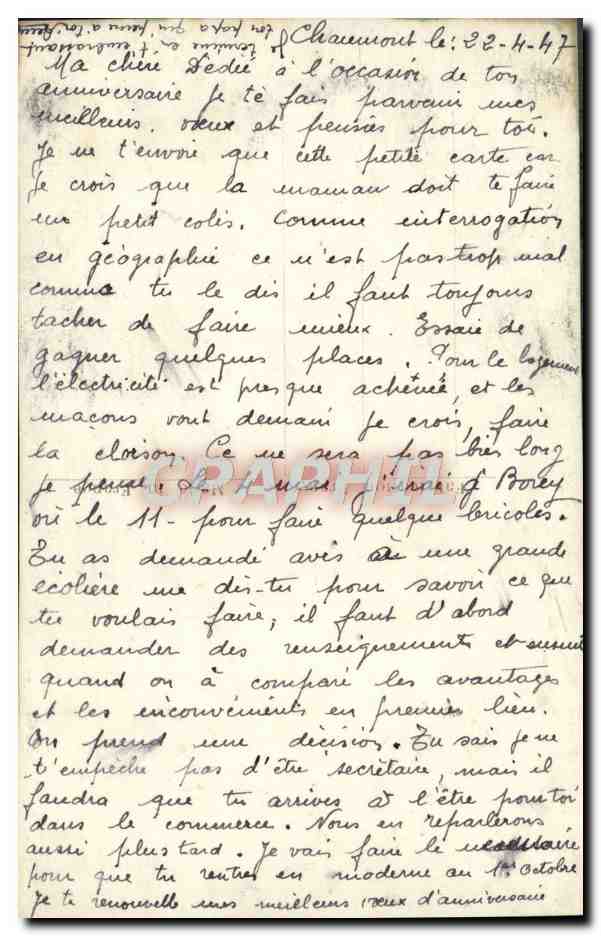 Chaumont le : 22-4-47
Ma chère Dédée à l'occasion de ton
anniversaire je te fais parvenir mes
meilleurs. vœux et pensées pour toi.
Je ne t'envoie que cette petite carte car
je crois que la maman doit te faire
un petit colis. Comme interrogation
en géographie ce n'est pas trop mal
comme tu le dis il faut toujours
tacher de faire mieux. Essaie de
gagner quelques places. Pour le logement
l'électricité est presque achevée, et les
maçons vont demain je crois, faire
la cloison. Ce ne sera pas bien long
je pense. Le 4 mai j'irai à Borey
où le 11 - pour faire quelque bricoles.
Tu as demandé avis à une grande
écolière me dis-tu pour savoir ce que
tu voulais faire, il faut d'abord
demander des renseignements et ensuite
quand on à comparé les avantages
et les inconvénients en premier lieu.
On prend une décision. Tu sais je ne
t'empêche pas d'être secrètaire, mais il
faudra que tu arrives à l'être pour toi
dans le commerce. Nous en reparlerons
aussi plus tard. Je vais faire le nécessaire
pour que tu rentres en moderne au 1er Octobre
Je te renouvelle mes meilleurs vœux d'anniversaire
Je termine en t'embrassant
ton papa qui pense a toi
CPAPHIL